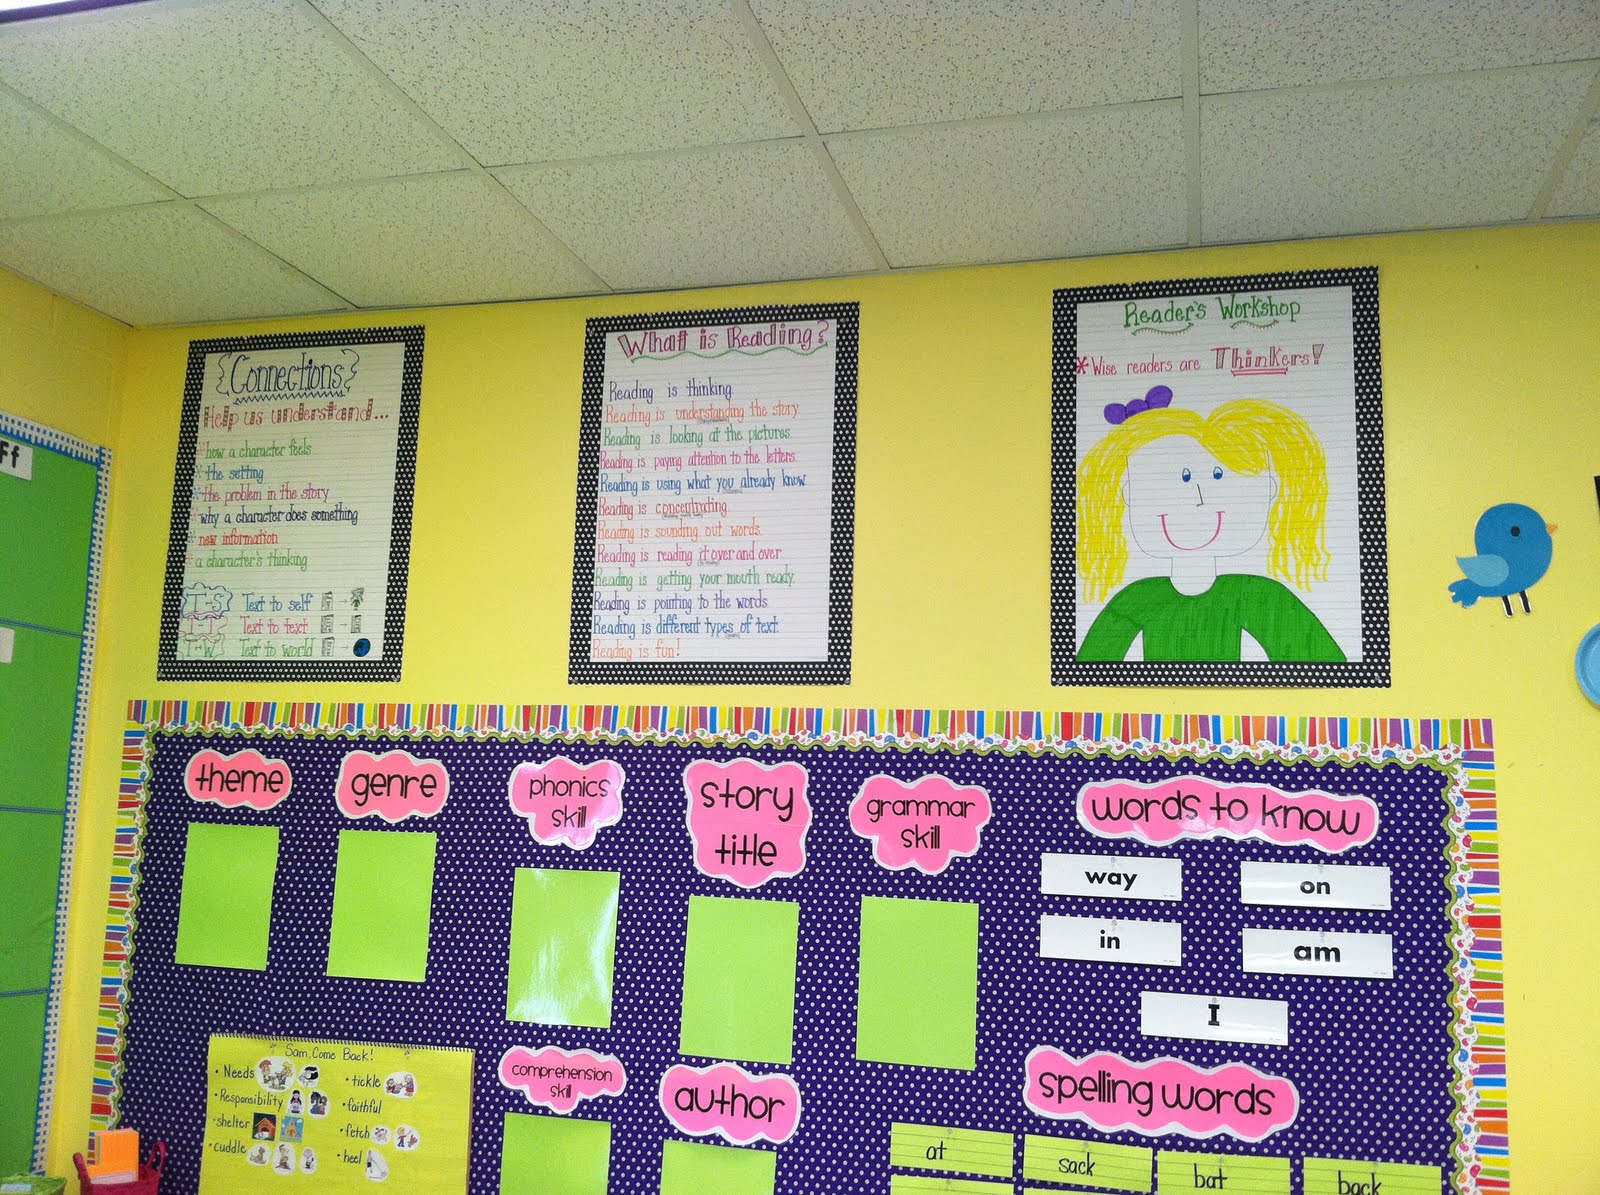 Ff
Connections
Help us understand...
* how a character feels
* the setting
* the problem in the story
* why a character does something
* new information
* a character's thinking
T-S Text to self
T-T Text to text
T-W Text to world
What is Reading?
Reading is thinking.
Reading is understanding the story.
Reading is looking at the pictures.
Reading is paying attention to the letters.
Reading is using what you already know.
Reading is concentrating.
Reading is sounding out words.
Reading is reading it over and over.
Reading is getting your mouth ready.
Reading is pointing to the words.
Reading is different types of text.
Reading is fun!
Reader's Workshop
* Wise readers are Thinkers!
theme
genre
phonics
skill
story
title
grammar
skill
words to know
way
on
in
am
I
Sam, Come Back!
• Needs
• Responsibility
• shelter
• cuddle
• tickle
• faithful
• fetch
• heel
comprehension
skill
author
spelling words
at
sack
bat
back